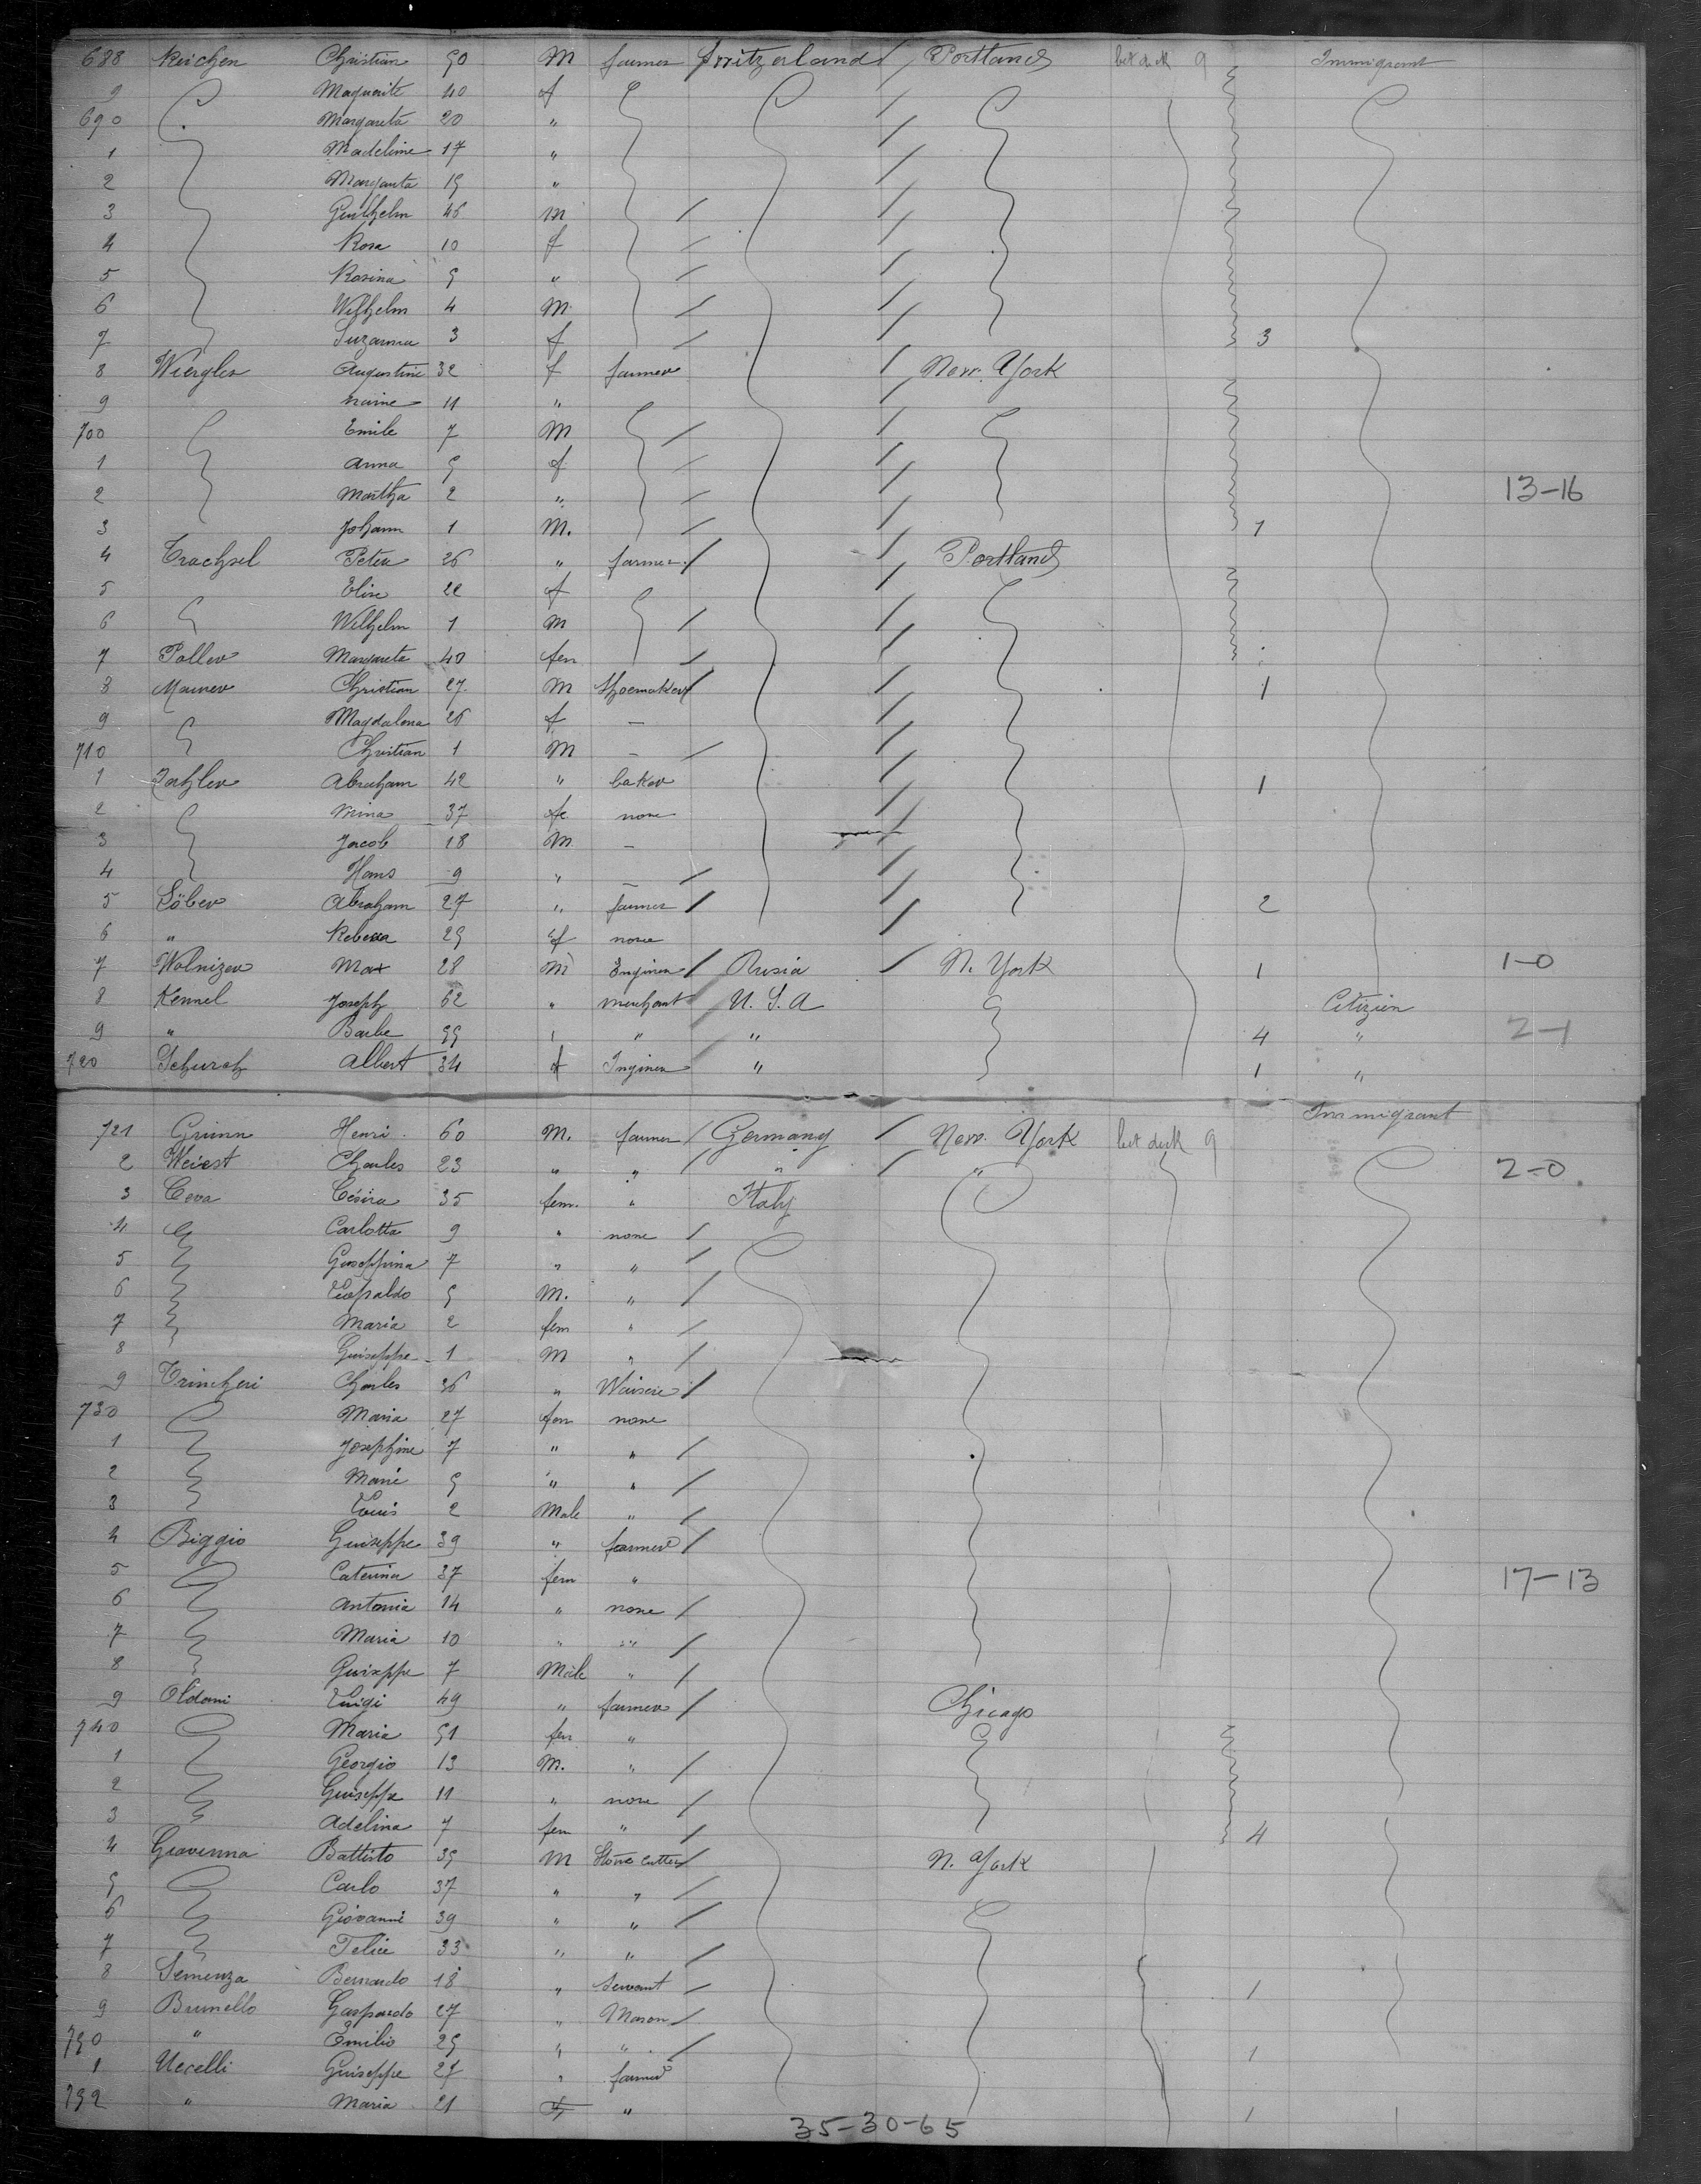 688 Reichen Christian 50 M farmer Switzerland Portland bet deck 9 Immigrant
9 Maguerite 40 f
690 Margareta 20 "
1 Madeline 17 "
2 Margarita 15 "
3 46 m
4 Rosa 10 f
5 Rosina 5 "
6 Wilhelm 4 M
7 Suzanna 3 f 3
8 Augustine 32 f farmer New. York
9 11 "
700 Emile 7 M
1 Anna 5 f
2 Martha 2 " 13-16
3 Johann 1 M. 1
4 Trachsel Peter 26 " farmer Portland
5 Elise 22 f
6 Wilhelm 1 m
7 Margareta 40 fem
8 Maurer Christian 27 M Shoemaker 1
9 Magdalena 26 f —
710 Christian 1 M —
1 Abraham 42 " baker 1
2 37 fe none
3 Jacob 18 M —
4 Hans 9 " —
5 Abraham 27 " farmer 2
6 " Rebecca 25 f none
7 Wolnizer Max 28 M Enginer Rusia N. York 1 1-0
8 Kennel Joseph 62 " merchant U. S. A Citizien
9 " Barbe 55 " " 4 " 2-1
720 Schurch Albert 34 f Inginer " 1 "
Immigrant
721 Grunn Henri 60 M. farmer Germany New. York bet deck 9
2 Weiest Charles 23 " " " " 2-0
3 Ceva Cesira 35 fem. " Italy
4 Carlotta 9 " none
5 Guseppina 7 " "
6 5 M. "
7 Maria 2 fem "
8 Guiseppe 1 M "
9 Trincheri Charles 36 "
730 Maria 27 fem none
1 Josephine 7 " "
2 Marie 5 " "
3 Louis 2 Male "
4 Biggio Guiseppe 39 " farmer
5 Caterina 37 fem " 17-13
6 Antonia 14 " none
7 Maria 10 " "
8 Guiseppe 7 Male "
9 Oldani Luigi 49 " farmer Chicago
740 Maria 51 fem "
1 Georgio 13 M. "
2 Guiseppe 11 " none
3 Adelina 7 fem " 4
4 Giavenna Battisto 35 M Stone cutter N. York
5 Carlo 37 " "
6 Giovanni 39 " "
7 Felice 33 " "
8 Semenza Bernardo 18 " Servant 1
9 Brunello Gaspardo 27 " Mason
750 " Emilio 25 " " 1
1 Uccelli Guiseppe 27 " farmer
752 " Maria 21 f " 1
35-30-65